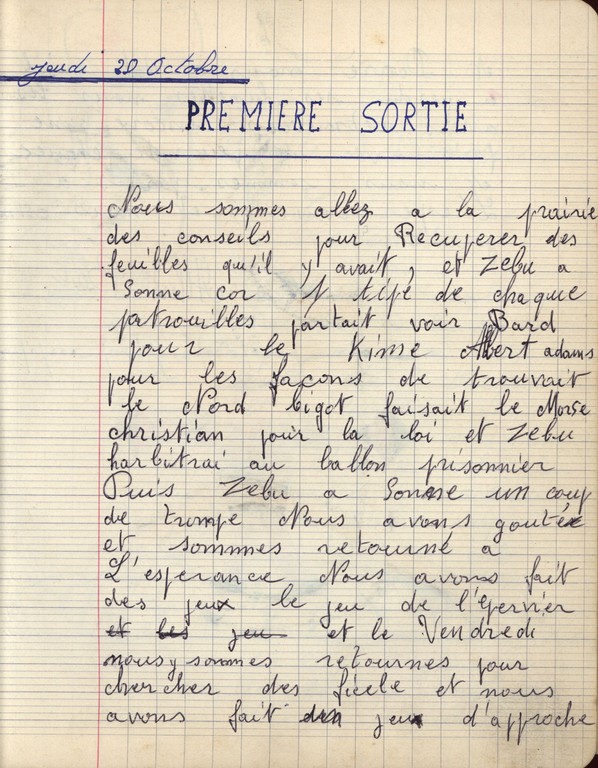 jeudi 20 Octobre
PREMIERE SORTIE
Nous sommes allez a la prairie
des conseils pour Recuperer des
feuilles qu'il y avait, et Zebu a
Sonne cor 1 tipé de chaque
patrouilles partait voir Bard
pour le Kime Albert adams
pour les façons de trouvait
le Nord bigot faisait le Morse
christian pour la loi et Zebu
harbitrai au ballon prisonnier
Puis Zebu a Sonne un coup
de trompe Nous avons goutée
et sommmes retourné a
L'esperance Nous avons fait
des jeux le jeu de l'épervier
et les jeu et le Vendredi
nous y sommes retournes pour
chercher des ficele et nous
avons fait jeu d'approche